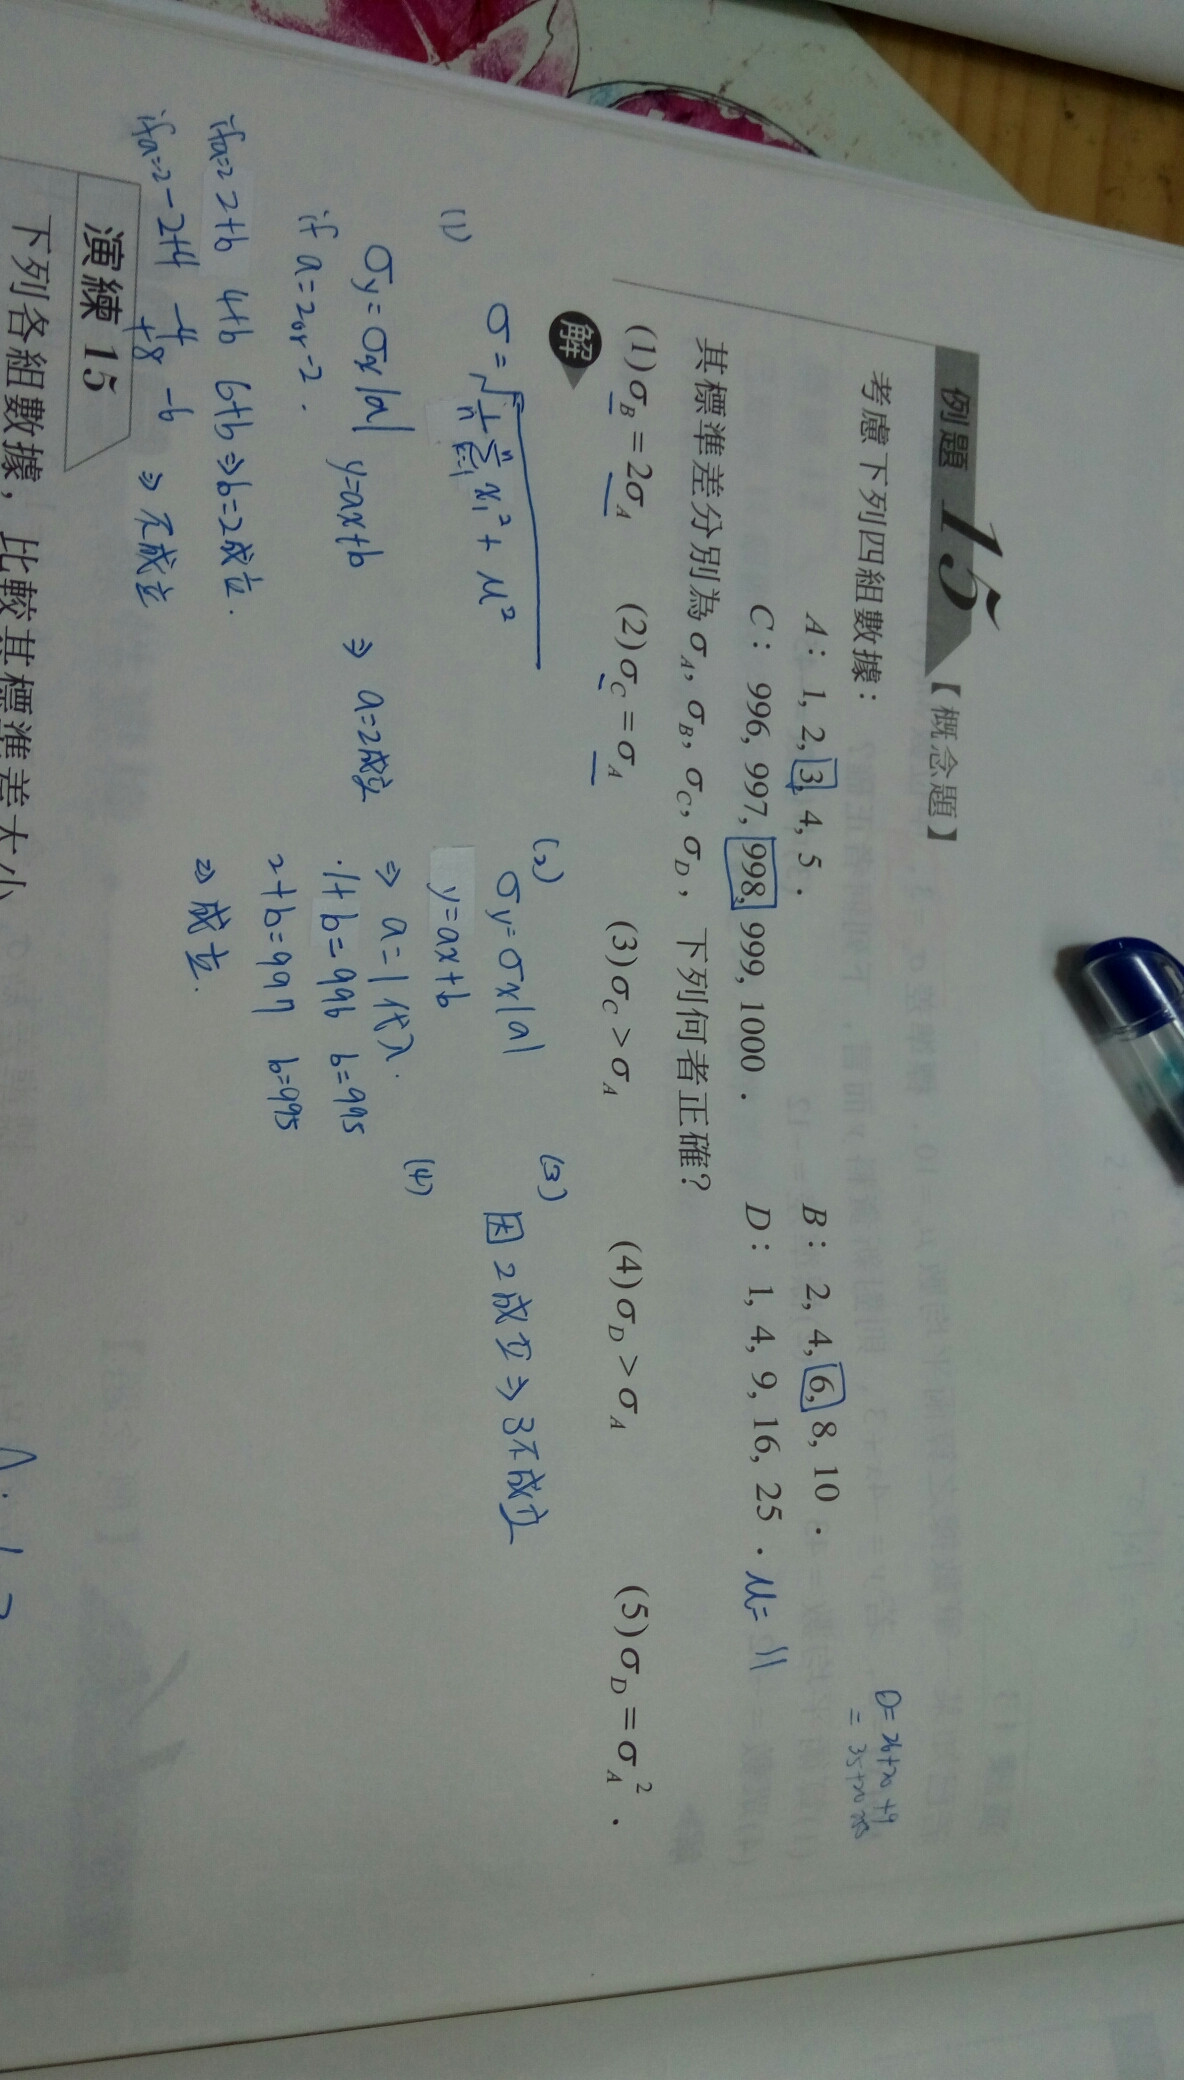 例題 15 【概念題】
考慮下列四組數據：
A：1, 2, 3, 4, 5． B：2, 4, 6, 8, 10．
C：996, 997, 998, 999, 1000． D：1, 4, 9, 16, 25． μ= 11
其標準差分別為 σA, σB, σC, σD，下列何者正確？
(1)σB＝2σA (2)σC＝σA (3)σC＞σA (4)σD＞σA (5)σD＝σA²．
解
σ=√(1/n Σ(n, k=1) x₁² + μ²)
(1)
σy=σx|a| y=ax+b ⇒ a=2成立
if a=2 or -2．
if a=2 2+b 4+b 6+b ⇒ b=2成立．
if a=-2 -2+4 -4+8 -6 ⇒ 不成立
(2)
σy=σx|a|
y=ax+b
⇒ a=1 代入．
·1+b=996 b=995
2+b=997 b=995
⇒ 成立．
(3)
因2成立⇒3不成立
(4)
演練 15
下列各組數據，比較其標準差大小